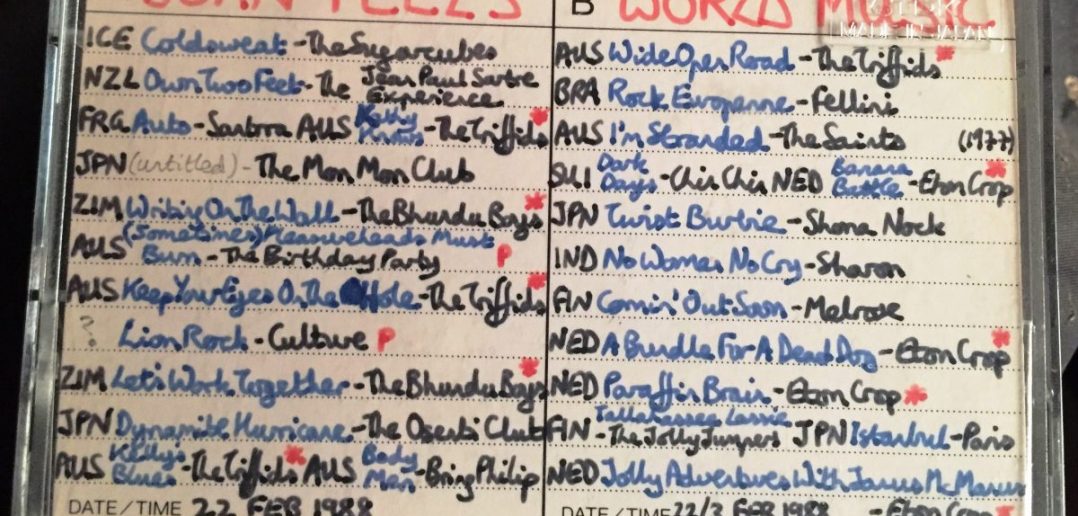 JOHN PEEL'S
ICE Coldsweat - The Sugarcubes
NZL Own Two Feet - The Jean Paul Sartre Experience
FRG Auto - Santrra AUS Kathy Knows - The Triffids *
JPN (untitled) - The Mon Mon Club
ZIM Writing On The Wall - The Bhundu Boys *
AUS (Sometimes) Pleasureheads Must Burn - The Birthday Party P
AUS Keep Your Eyes On The Hole - The Triffids *
? Lion Rock - Culture P
ZIM Let's Work Together - The Bhundu Boys *
JPN Dynamite Hurricane - The Oserbi Club
AUS Kelly's Blues - The Triffids * AUS Body Man - Bring Philip
DATE/TIME 22 FEB 1988
B WORLD MUSIC
MADE IN JAPAN
AUS Wide Open Road - The Triffids *
BRA Rock Europeene - Fellini
AUS I'm Stranded - The Saints (1977)
SUI Dark Days - Chin Chin NED Banana Battle - Eton Crop *
JPN Twist Burbie - Shona Nock
IND No Woman No Cry - Sharon
FIN Comin' Out Soon - Melrose
NED A Bundle For A Dead Dog - Eton Crop *
NED Paraffin Brain - Eton Crop *
FIN Tallahassee Lassie - The Jolly Jumpers JPN Istanbul - Paris
NED Jolly Adventures With James McManus
DATE/TIME 22/3 FEB 1988 - Eton Crop *